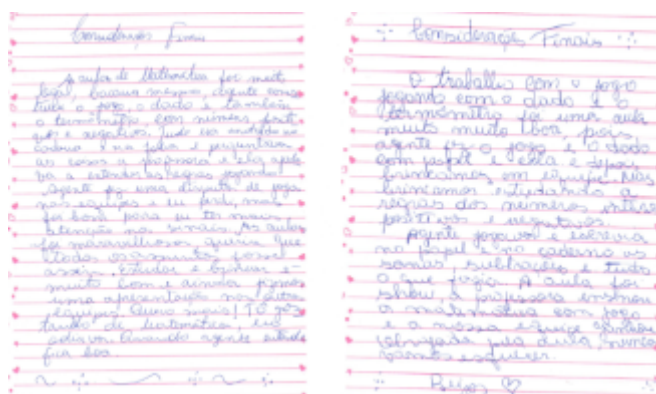 Considerações Finais
A aula de Matemática foi muito
legal, bacana mesmo, agente cons
truiu o jogo, o dado e também
o termômetro, com números, positi
vos e negativos, tudo era anotado no
caderno e na folha e perguntava
as coisas a professora e ela ajuda
va a entender as regras jogando.
Agente fez uma disputa de jogo
nas equipes e eu perdi, mas
foi bom para eu ter mais
atenção nos sinais. As aulas
foi maravilhosa, queria que
todos os assuntos fosse
assim. Estudar e brincar é
muito bom e ainda fomos
uma apresentação nas outras
equipes. Quero mais! Tô gos
tando de matemática, eu
adorava quando agente
fica boa.
Considerações Finais
O trabalho com o jogo
jogando com o dado e o
termômetro foi uma aula
muito muito boa, pois
agente fez o jogo e o dado
com papel e cola e depois
brincamos em equipe. Nós
brincamos estudando a
regras dos números inteiros
positivos e negativos.
Agente jogava e escrevia
no papel e no caderno as
somas, subtrações e tudo
o que fazia. A aula foi
show a professora ensinou
a matemática com jogo
e a nossa equipe ganhou
obrigada pela aula, nunca
vamos esquecer.
Beijos